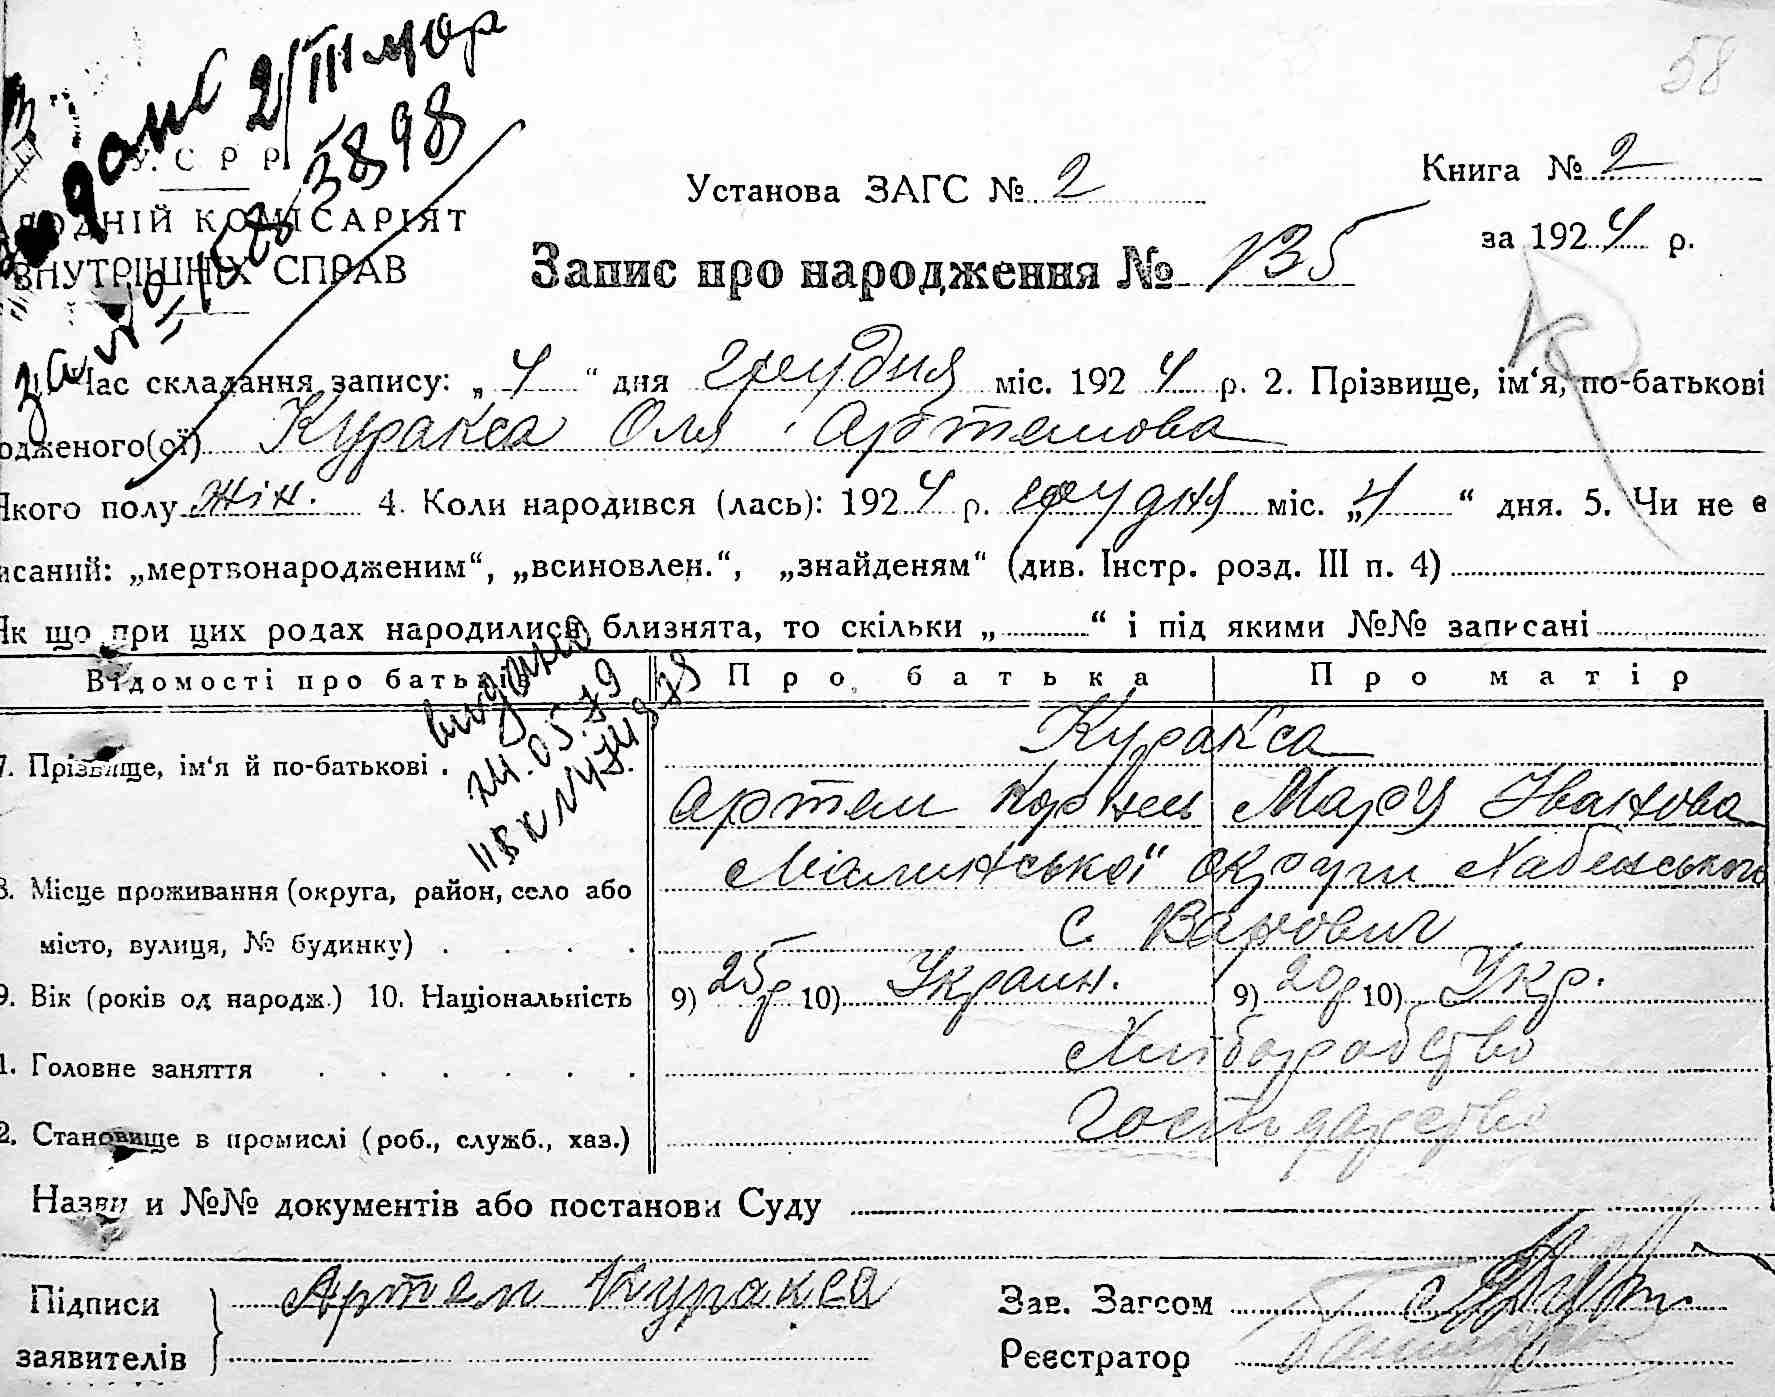 58
У. С. Р. Р.
НАРОДНІЙ КОМІСАРІЯТ
ВНУТРІШНІХ СПРАВ
Установа ЗАГС № 2
Книга № 2
за 1924 р.
Запис про народження № 135
Час складання запису: „4“ дня грудня міс. 1924 р. 2. Прізвище, ім‘я, по-батькові
одженого(ої) Куракса Оля Артемова
Якого полу жін. 4. Коли народився (лась): 1924 р. грудня міс. „4“ дня. 5. Чи не є
исаний: „мертвонародженим“, „всиновлен.“, „знайденям“ (див. Інстр. розд. III п. 4)
Як що при цих родах народилися близнята, то скільки „ “ і під якими №№ записані
видано
24.05.79
Відомості про батьків Про батька Про матір
7. Прізвище, ім‘я й по-батькові . Куракса
Артем Корніев Мару Іванова
8. Місце проживання (округа, район, село або Малинської округи Хабенського
місто, вулиця, № будинку) . . . . с. Варович
9. Вік (років од народж.) 10. Національність 9) 25 р 10) Украин. 9) 20 р 10) Укр.
1. Головне заняття . . . . . . Хліборобство
2. Становище в промислі (роб., служб., хаз.) Господарство
Назви и №№ документів або постанови Суду
Підписи Артем Куракса Зав. Загсом
заявителів Реєстратор